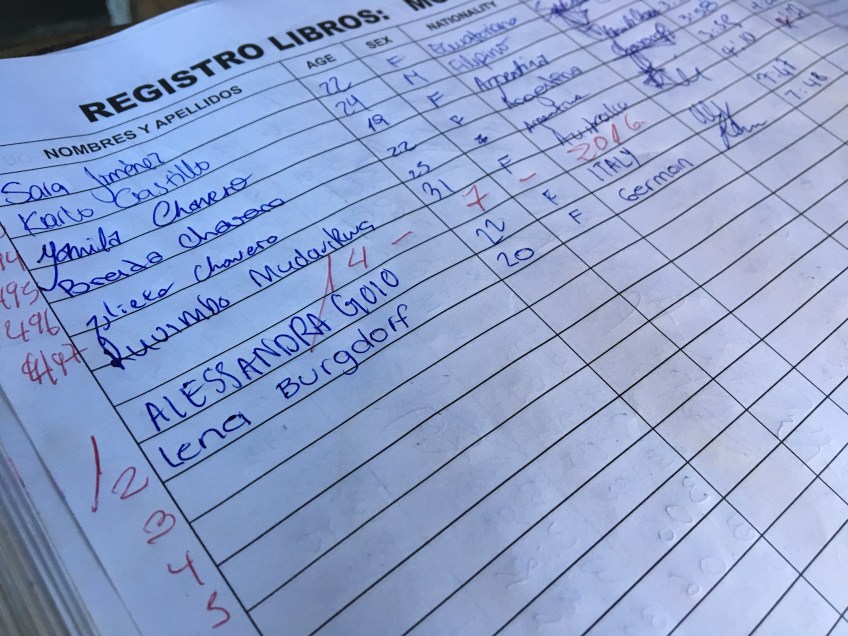 REGISTRO LIBROS: MO
NOMBRES Y APELLIDOS AGE SEX NATIONALITY
Sara Jiménez 22 F Ecuatoriana
Karlo Castillo 24 M Filipino 3:58
Yamila Chavero 19 F Argentina 3:58
495 Brenda Chavero 22 F Argentina 3:58
496 Julieta Chavero 25 Argentina 4:30
497 31 F Australia
14 - 7 - 2016
1 ALESSANDRA GOIO 22 F ITALY 7:47
2 Lena Burgdorf 20 F German 7:48
3
4
5